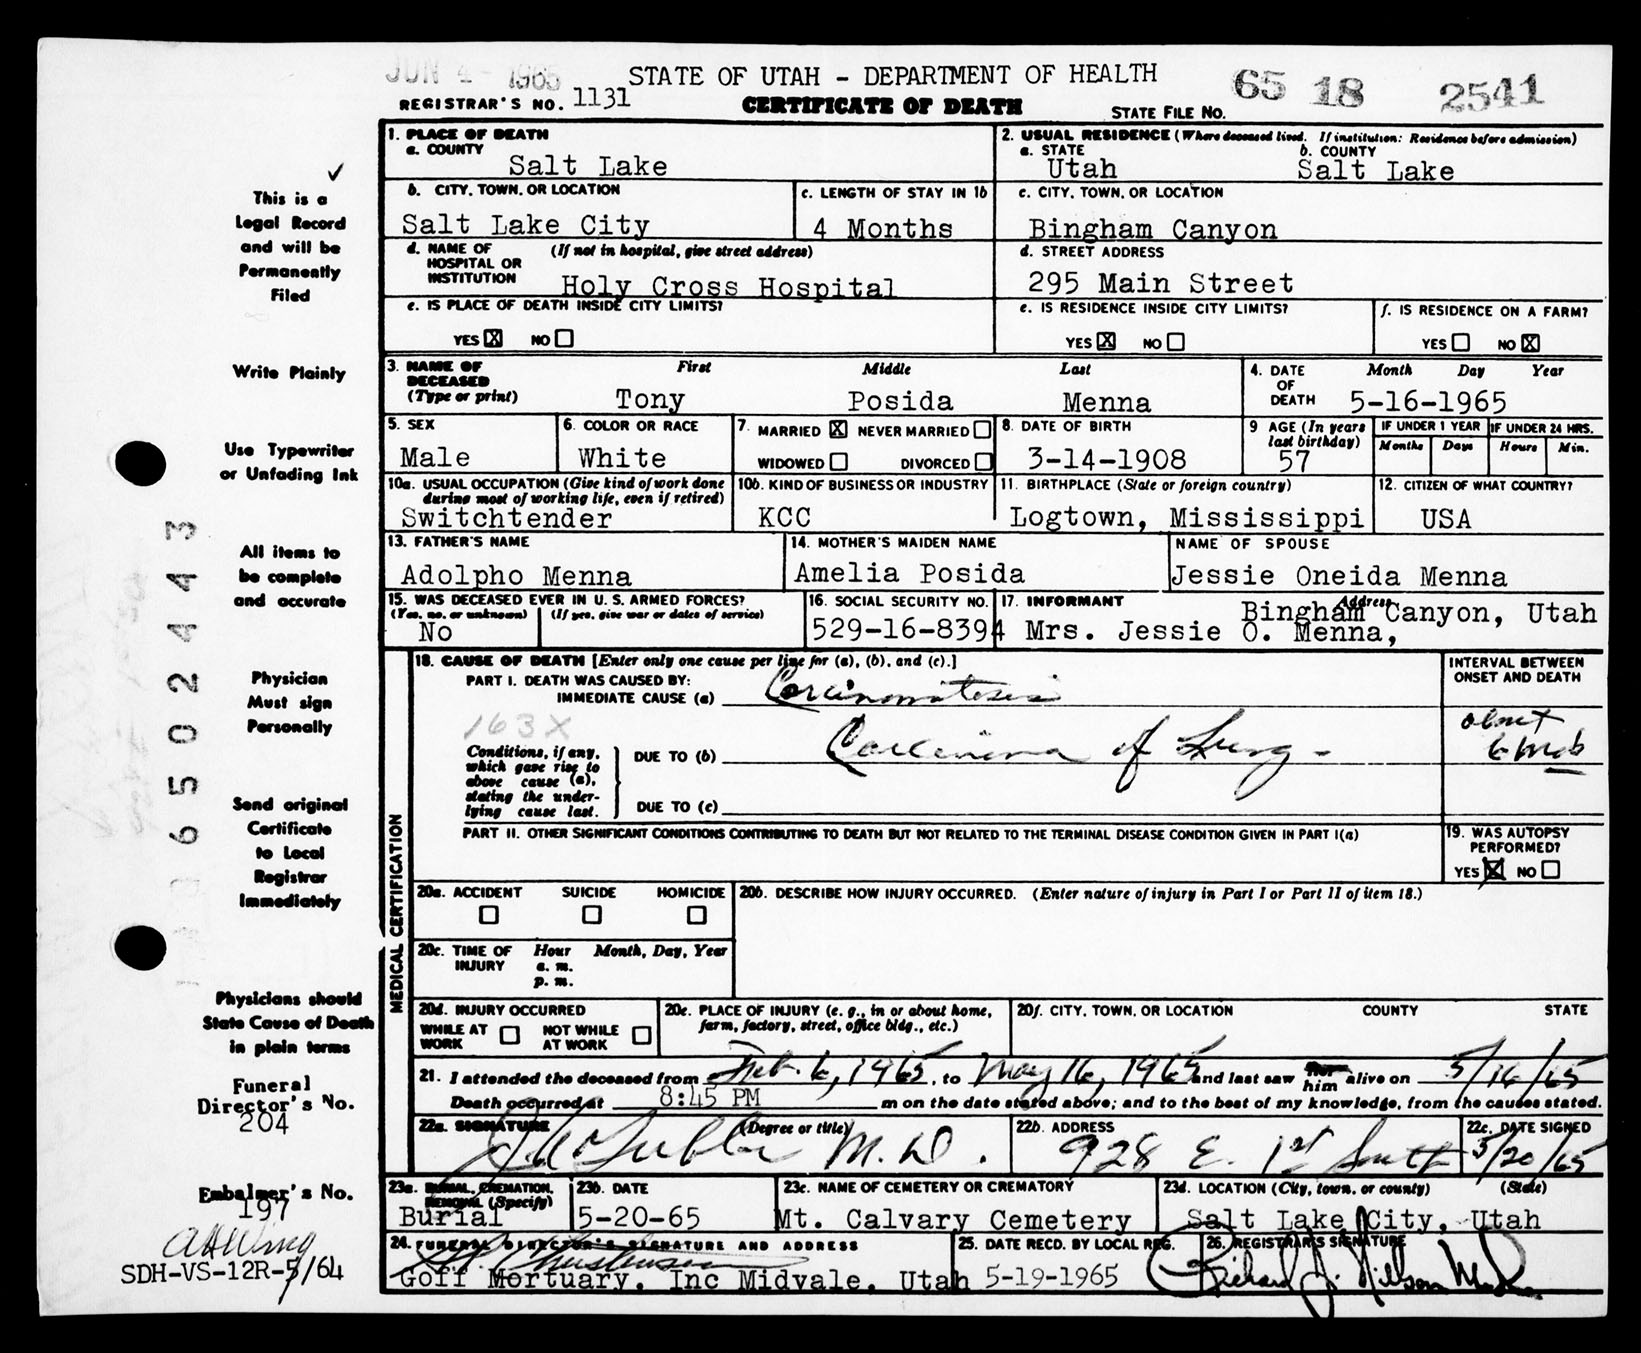 JUN 4 - 1965
STATE OF UTAH - DEPARTMENT OF HEALTH
65 18 2541
REGISTRAR'S NO. 1131
CERTIFICATE OF DEATH
STATE FILE NO.
1. PLACE OF DEATH
a. COUNTY
Salt Lake
2. USUAL RESIDENCE (Where deceased lived. If institution: Residence before admission)
a. STATE
Utah
b. COUNTY
Salt Lake
b. CITY, TOWN, OR LOCATION
Salt Lake City
c. LENGTH OF STAY IN 1b
4 Months
c. CITY, TOWN, OR LOCATION
Bingham Canyon
d. NAME OF HOSPITAL OR INSTITUTION
(If not in hospital, give street address)
Holy Cross Hospital
d. STREET ADDRESS
295 Main Street
e. IS PLACE OF DEATH INSIDE CITY LIMITS?
YES X NO
e. IS RESIDENCE INSIDE CITY LIMITS?
YES X NO
f. IS RESIDENCE ON A FARM?
YES NO X
3. NAME OF DECEASED
(Type or print)
First Middle Last
Tony Posida Menna
4. DATE OF DEATH
Month Day Year
5-16-1965
5. SEX
Male
6. COLOR OR RACE
White
7. MARRIED X NEVER MARRIED
WIDOWED DIVORCED
8. DATE OF BIRTH
3-14-1908
9 AGE (In years last birthday)
57
IF UNDER 1 YEAR
Months Days
IF UNDER 24 HRS.
Hours Min.
10a. USUAL OCCUPATION (Give kind of work done during most of working life, even if retired)
Switchtender
10b. KIND OF BUSINESS OR INDUSTRY
KCC
11. BIRTHPLACE (State or foreign country)
Logtown, Mississippi
12. CITIZEN OF WHAT COUNTRY?
USA
13. FATHER'S NAME
Adolpho Menna
14. MOTHER'S MAIDEN NAME
Amelia Posida
NAME OF SPOUSE
Jessie Oneida Menna
15. WAS DECEASED EVER IN U. S. ARMED FORCES?
(Yes, no, or unknown) (If yes, give war or dates of service)
No
16. SOCIAL SECURITY NO.
529-16-8394
17. INFORMANT Address
Bingham Canyon, Utah
Mrs. Jessie O. Menna,
MEDICAL CERTIFICATION
18. CAUSE OF DEATH [Enter only one cause per line for (a), (b), and (c).]
PART I. DEATH WAS CAUSED BY:
IMMEDIATE CAUSE (a) Carcinomatosis
163X
Conditions, if any, which gave rise to above cause (a), stating the underlying cause last.
DUE TO (b) Carcinoma of Lung -
DUE TO (c)
INTERVAL BETWEEN ONSET AND DEATH
about
6 mos
PART II. OTHER SIGNIFICANT CONDITIONS CONTRIBUTING TO DEATH BUT NOT RELATED TO THE TERMINAL DISEASE CONDITION GIVEN IN PART I(a)
19. WAS AUTOPSY PERFORMED?
YES X NO
20a. ACCIDENT SUICIDE HOMICIDE
20b. DESCRIBE HOW INJURY OCCURRED. (Enter nature of injury in Part I or Part II of item 18.)
20c. TIME OF INJURY
Hour Month, Day, Year
a. m.
p. m.
20d. INJURY OCCURRED
WHILE AT WORK NOT WHILE AT WORK
20e. PLACE OF INJURY (e. g., in or about home, farm, factory, street, office bldg., etc.)
20f. CITY, TOWN, OR LOCATION COUNTY STATE
21. I attended the deceased from Feb. 6, 1965, to May 16, 1965 and last saw her him alive on 5/16/65
Death occurred at 8:45 PM m on the date stated above; and to the best of my knowledge, from the causes stated.
22a. SIGNATURE (Degree or title)
M.D.
22b. ADDRESS
928 E. 1st South
22c. DATE SIGNED
5/20/65
23a. BURIAL, CREMATION, REMOVAL (Specify)
Burial
23b. DATE
5-20-65
23c. NAME OF CEMETERY OR CREMATORY
Mt. Calvary Cemetery
23d. LOCATION (City, town, or county) (State)
Salt Lake City, Utah
24. FUNERAL DIRECTOR'S SIGNATURE AND ADDRESS
Goff Mortuary, Inc Midvale, Utah
25. DATE RECD. BY LOCAL REG.
5-19-1965
26. REGISTRAR'S SIGNATURE
Richard J. Nilson M.D.
This is a
Legal Record
and will be
Permanently
Filed
Write Plainly
Use Typewriter
or Unfading Ink
All items to
be complete
and accurate
Physician
Must sign
Personally
Send original
Certificate
to Local
Registrar
Immediately
Physicians should
State Cause of Death
in plain terms
Funeral
Director's No.
204
Embalmer's No.
197
SDH-VS-12R-5/64
6502443